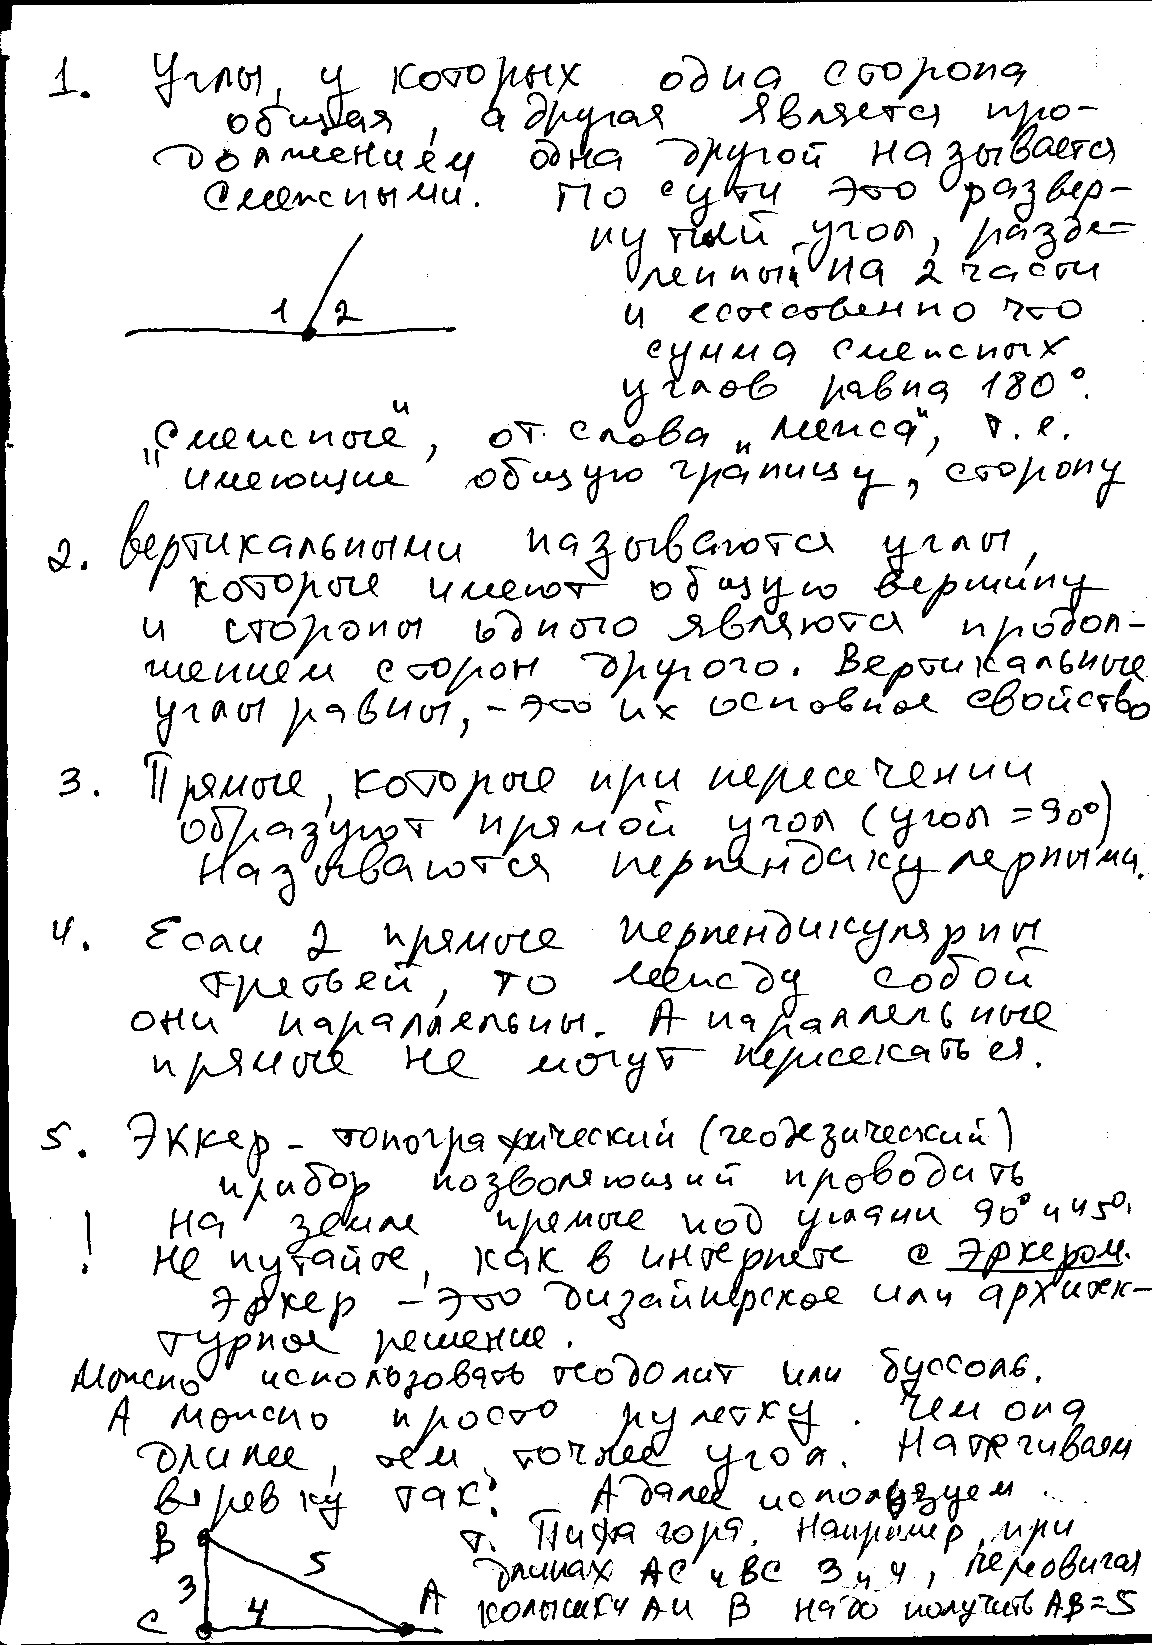 1. Углы, у которых одна сторона
общая, а другая является про-
должением одна другой называется
смежными. По сути это развер-
нутый угол, разде-
ленный на 2 части
1 2
и естественно что
сумма смежных
углов равна 180°.
"Смежные", от слова "межа", т.е.
имеющие общую границу, сторону
2. Вертикальными называются углы,
которые имеют общую вершину
и стороны одного являются продол-
жением сторон другого. Вертикальные
углы равны, - это их основное свойство
3. Прямые, которые при пересечении
образуют прямой угол (угол = 90°)
называются перпендикулярными.
4. Если 2 прямые перпендикулярны
третьей, то между собой
они параллельны. А параллельные
прямые не могут пересекаться.
5. Эккер - топографический (геодезический)
прибор позволяющий проводить
на земле прямые под углами 90° и 45°.
! Не путайте, как в интернете с эркером.
Эркер - это дизайнерское или архитек-
турное решение.
Можно использовать теодолит или буссоль.
А можно просто рулетку. Чем она
длинее, тем точнее угол. Натягиваем
веревку так: А далее используем
т. Пифагора. Например, при
длинах АС и ВС 3 и 4, передвигая
колышки А и В надо получить АВ=5
В 3 5 С 4 А